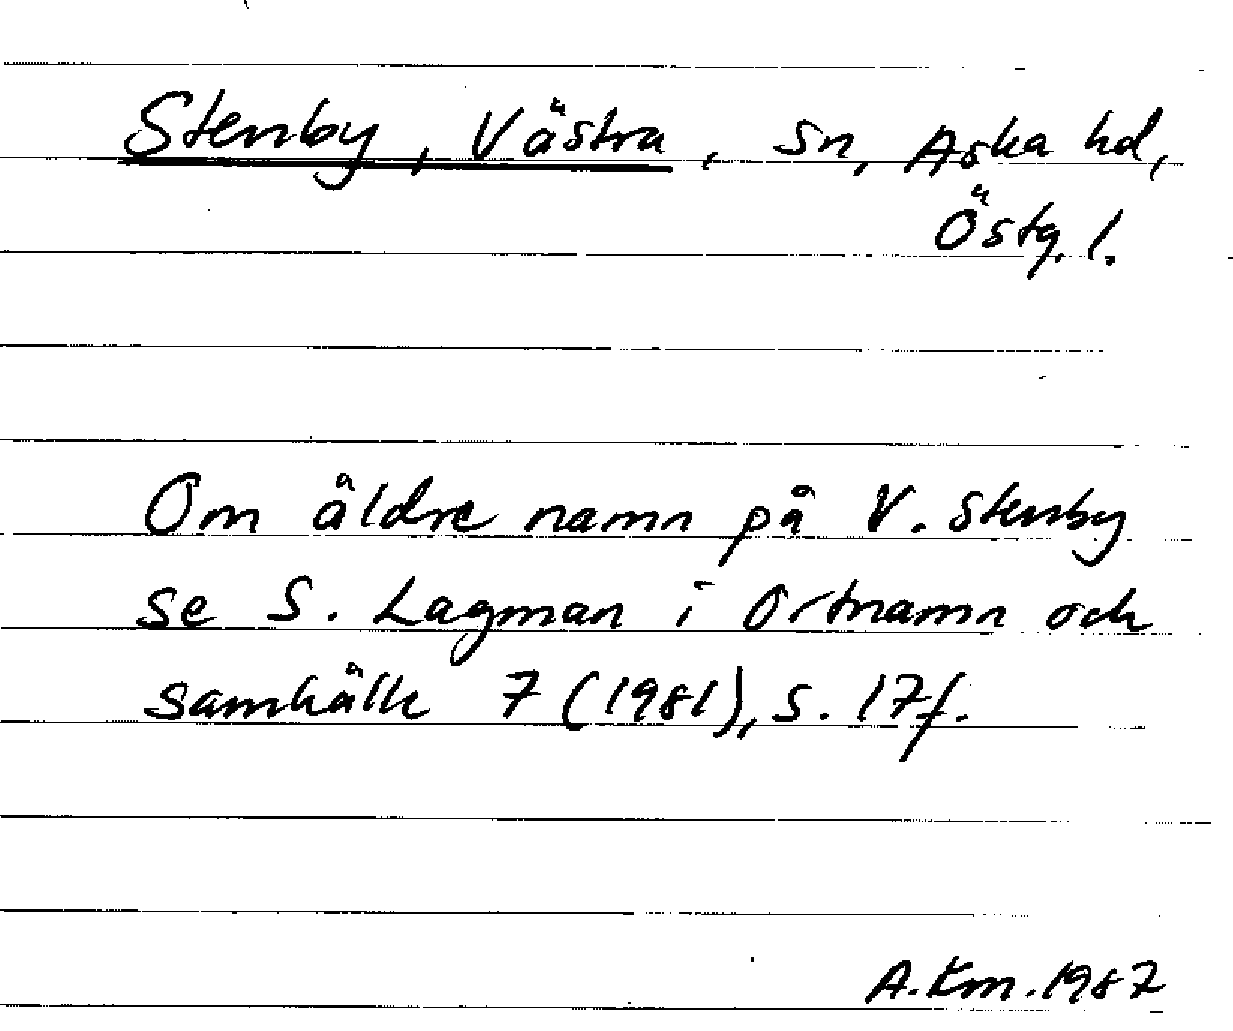 Stenby, Västra, sn, Aska hd,
Östg. l.
Om äldre namn på V. Stenby
se S. Lagman i Ortnamn och
samhälle 7 (1981), s. 17f.
A.Km.1987